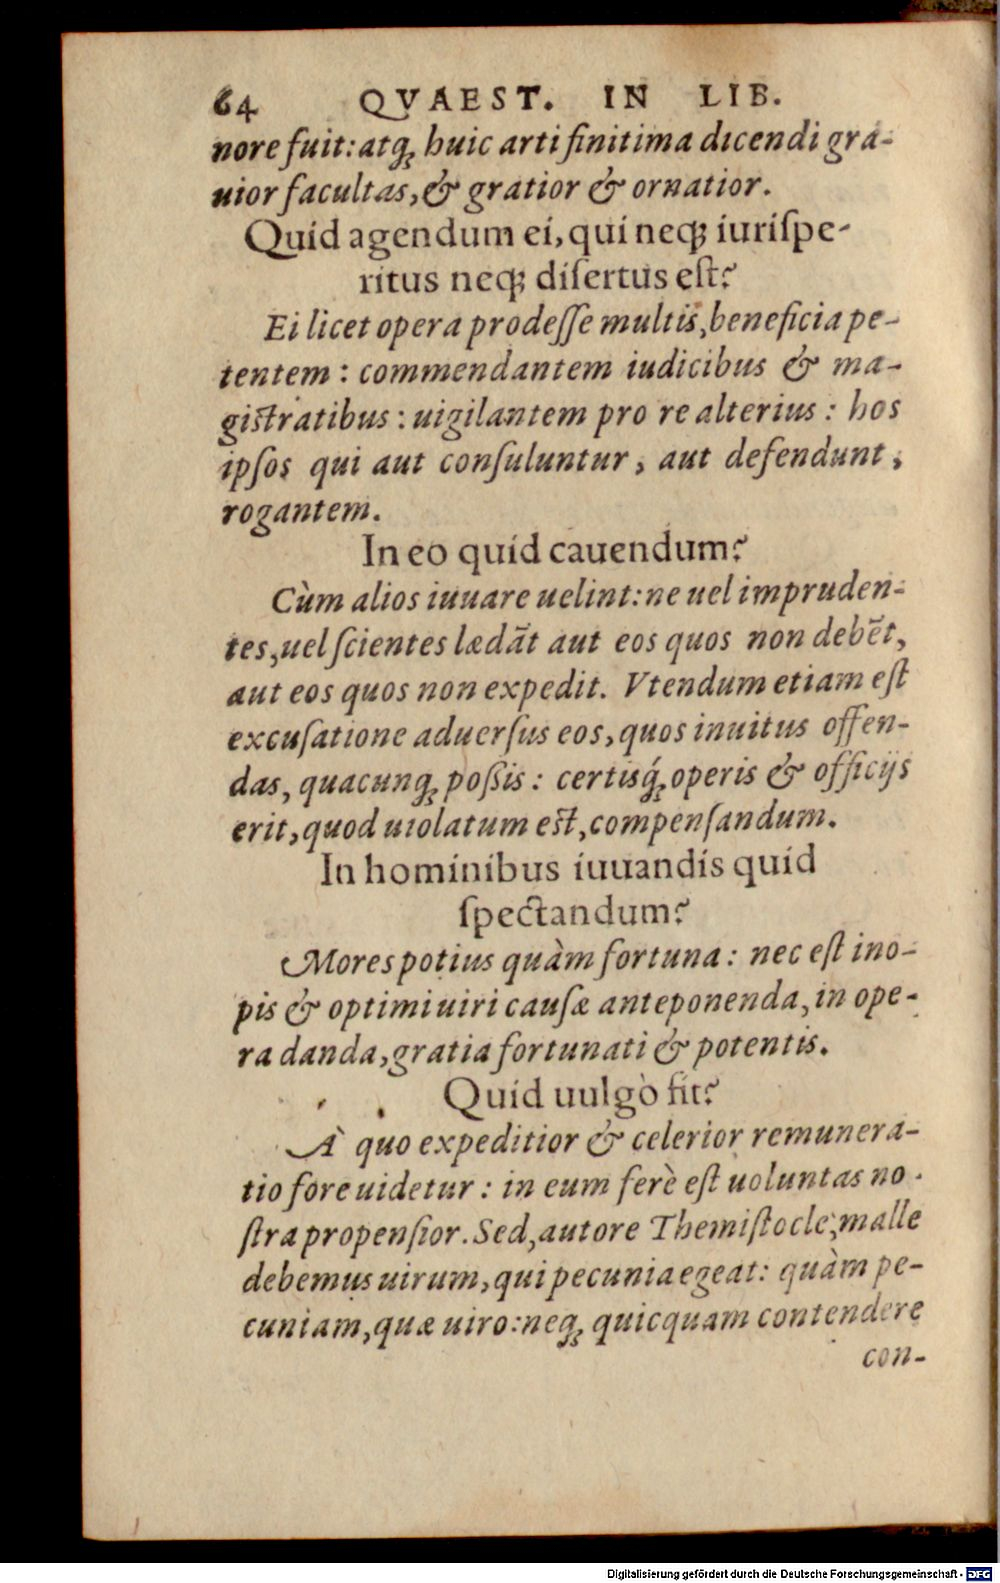 64 QVAEST. IN LIB.
nore fuit: atq; huic arti finitima dicendi gra-
uior facultas, & gratior & ornatior.
Quid agendum ei, qui neq; iuriſpe-
ritus neq; diſertus eſt?
Ei licet opera prodeſſe multis, beneficia pe-
tentem: commendantem iudicibus & ma-
giſtratibus: uigilantem pro re alterius: hos
ipſos qui aut conſuluntur, aut defendunt,
rogantem.
In eo quid cauendum?
Cùm alios iuuare uelint: ne uel impruden-
tes, uel ſcientes lædãt aut eos quos non debẽt,
aut eos quos non expedit. Vtendum etiam eſt
excuſatione aduerſus eos, quos inuitus offen-
das, quacunq; poßis: certisq́; operis & officijs
erit, quod uiolatum eſt, compenſandum.
In hominibus iuuandis quid
ſpectandum?
Mores potius quàm fortuna: nec eſt ino-
pis & optimi uiri cauſæ anteponenda, in ope-
ra danda, gratia fortunati & potentis.
Quid uulgò fit?
À quo expeditior & celerior remunera-
tio fore uidetur: in eum ferè eſt uoluntas no-
ſtra propenſior. Sed, autore Themiſtocle, malle
debemus uirum, qui pecunia egeat: quàm pe-
cuniam, quæ uiro: neq; quicquam contendere
con-
Digitalisierung gefördert durch die Deutsche Forschungsgemeinschaft - DFG